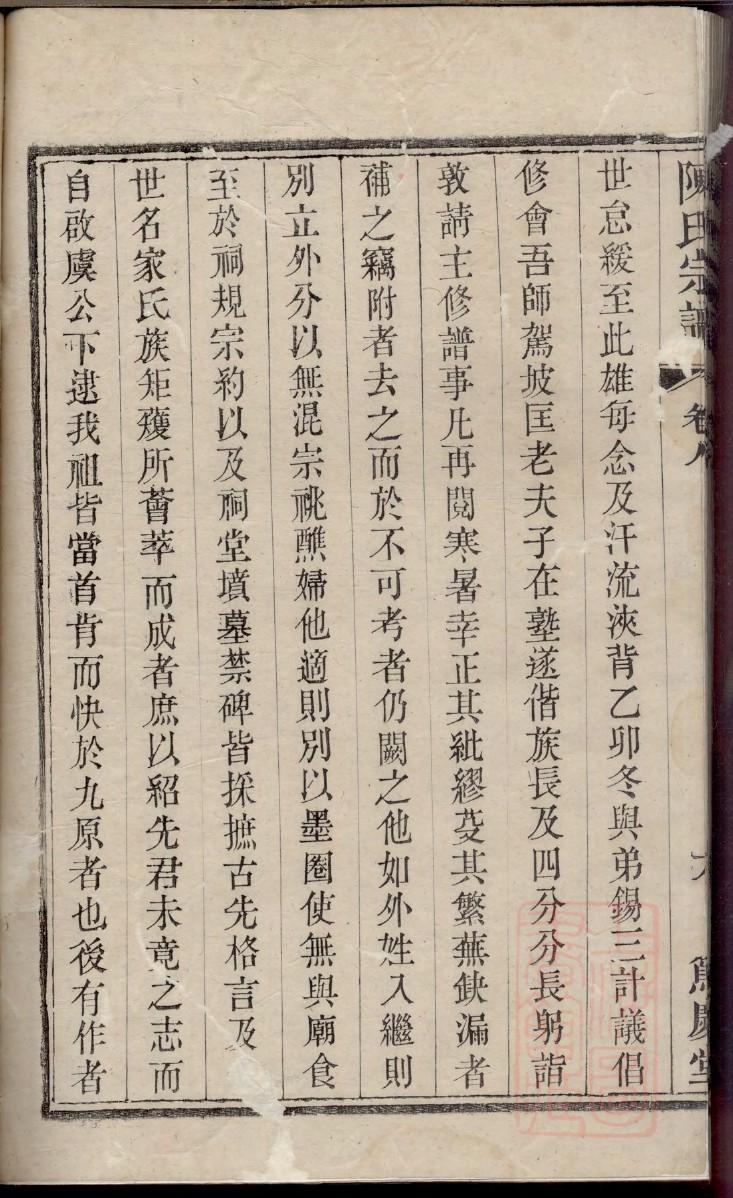 陳氏宗譜 卷八 六 篤慶堂
世怠緩至此雄每念及汗流浹背乙卯冬與弟錫三計議倡
修會吾師駕坡匡老夫子在塾遂偕族長及四分分長躬詣
敦請主修譜事凡再閱寒暑幸正其紕繆芟其繁蕪缺漏者
補之竊附者去之而於不可考者仍闕之他如外姓入繼則
別立外分以無混宗祧醮婦他適則別以墨圈使無與廟食
至於祠規宗約以及祠堂墳墓禁碑皆採摭古先格言及
世名家氏族矩矱所薈萃而成者庶以紹先君未竟之志而
自啟虞公下逮我祖皆當首肯而快於九原者也後有作者